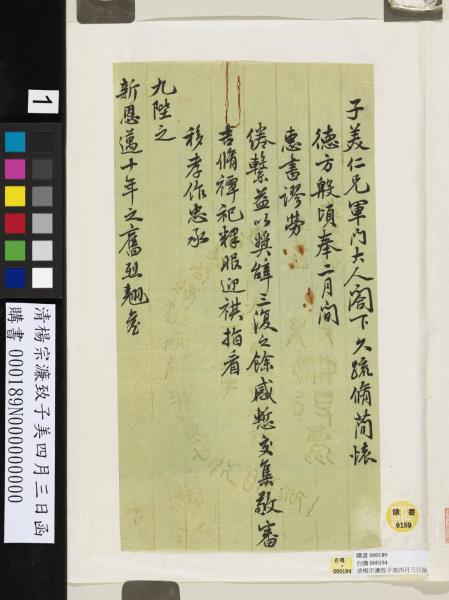 子美仁兄軍門大人閣下久疏脩簡懷
德方殷頃奉二月間
惠書謬勞
綣繫益以獎辭三復之餘感慙交集敬審
吉脩禫祀釋服迎祺指看
移孝作忠承
九陛之
新恩邁十年之舊烈翹詹
1
清楊宗濂致子美四月三日函
購書 000189N000000000
購書
0189
台購
000194
購書 000189
台購 000194
清楊宗濂致子美四月三日函